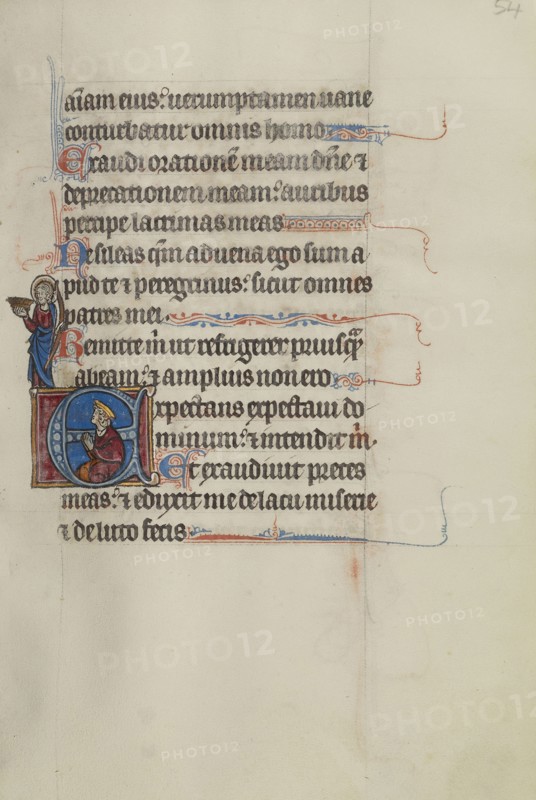 54
aīam eius: uerumptamen uane
conturbatur omnis homo.
Exaudi orationē meam dn̄e ⁊
deprecationem meam: auribus
percipe lacrimas meas.
Ne sileas qm̄ aduena ego sum a
pud te ⁊ peregrinus: sicut omnes
patres mei.
Remitte m̄ ut refrigerer priusq̄
abeam: ⁊ amplius non ero.
Expectans expectaui do
minum: ⁊ intendit m̄.
Et exaudiuit preces
meas: ⁊ eduxit me de lacu miserie
⁊ de luto fecis
PHOTO12